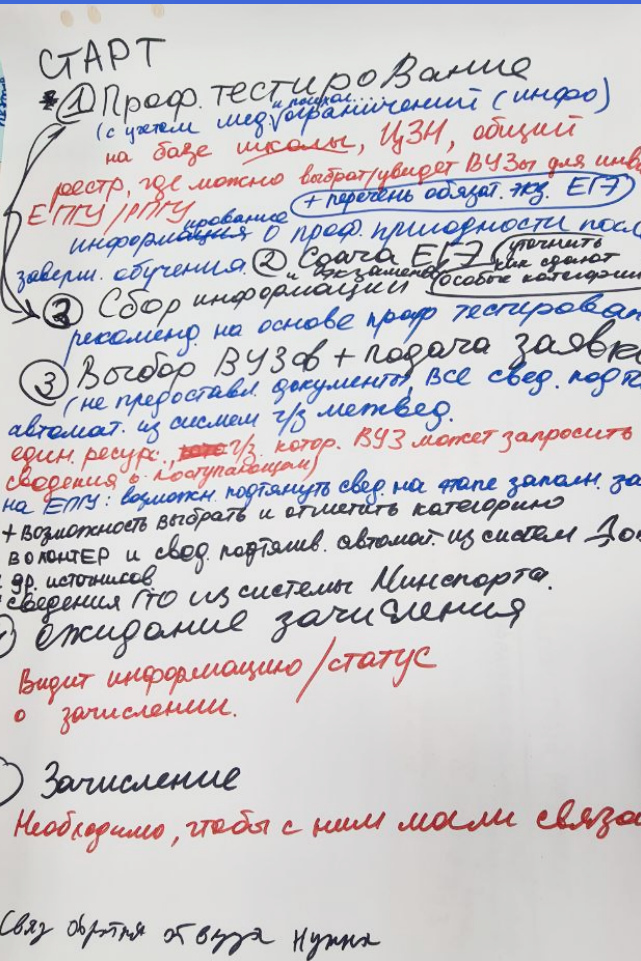 СТАРТ
① Проф. тестирование
(с учетом мед и психол... ограничений (инфо)
на базе школы, ЦЗН, общий
реестр, где можно выбрат/увидет ВУЗы для инв
ЕПГУ/РПГУ + перечень обязат. экз. ЕГЭ
информирование о проф. пригодности посл
заверш. обучения. ② Сдача ЕГЭ (уточнить
и экзамены как сдают
③ Сбор информации (особые категории
рекоменд. на основе проф тестирован
③ Выбор ВУЗов + подача заявк
(не предоставл. документы, все свед. подт
автомат. из систем ч/з межвед.
един. ресурс, ч/з котор. ВУЗ может запросить
сведения о поступающем)
на ЕПГУ: возможн. подтянуть свед. на этапе заполн. за
+ возможность выбрать и отметить категорию
волонтЕР и свед. подтянив. автомат. из систем До
др. источников
сведения ГТО из системы Минспорта.
ожидание зачисления
Видит информацию/статус
о зачислении.
Зачисление
Необходимо, чтобы с ним могли связа
Связ обратня от вуза нужна